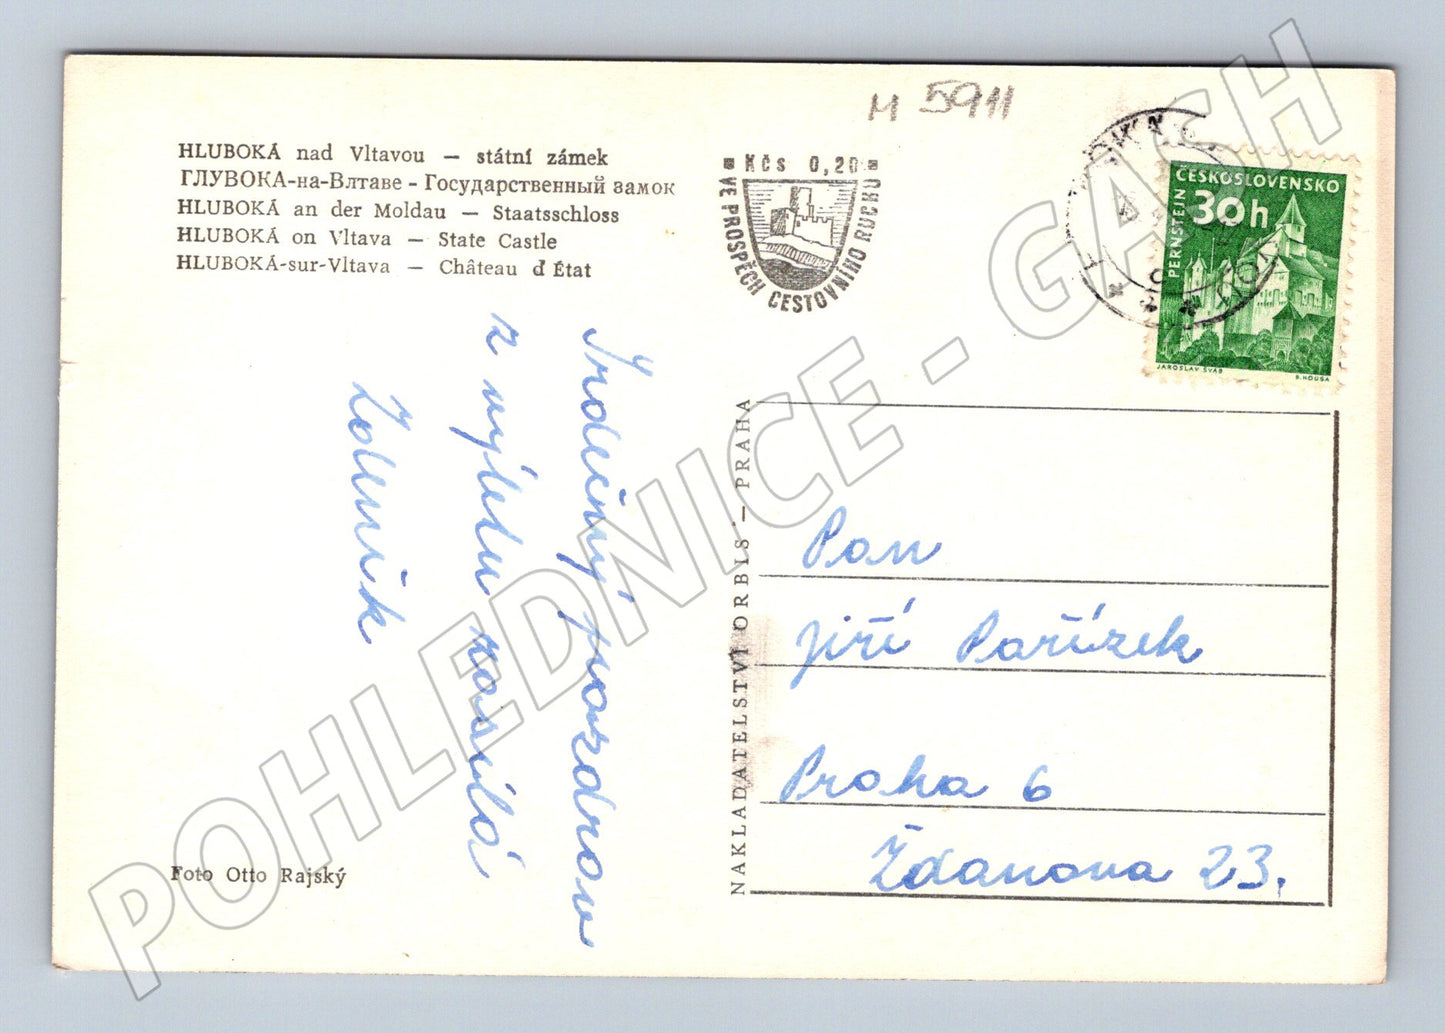 HLUBOKÁ nad Vltavou — státní zámek
ГЛУБОКА-на-Влтаве - Государственный замок
HLUBOKÁ an der Moldau — Staatsschloss
HLUBOKÁ on Vltava — State Castle
HLUBOKÁ-sur-Vltava — Château d État
M 5911
Kčs 0,20
VE PROSPĚCH CESTOVNÍHO RUCHU
ČESKOSLOVENSKO
30h
PERNŠTEJN
JAROSLAV ŠVÁB
B. HOUSA
Srdečný pozdrav
z výletu posílá
Zdeněk
NAKLADATELSTVÍ ORBIS — PRAHA
Pan
Jiří Pařízek
Praha 6
Ždanova 23.
Foto Otto Rajský
POHLEDNICE - GASH